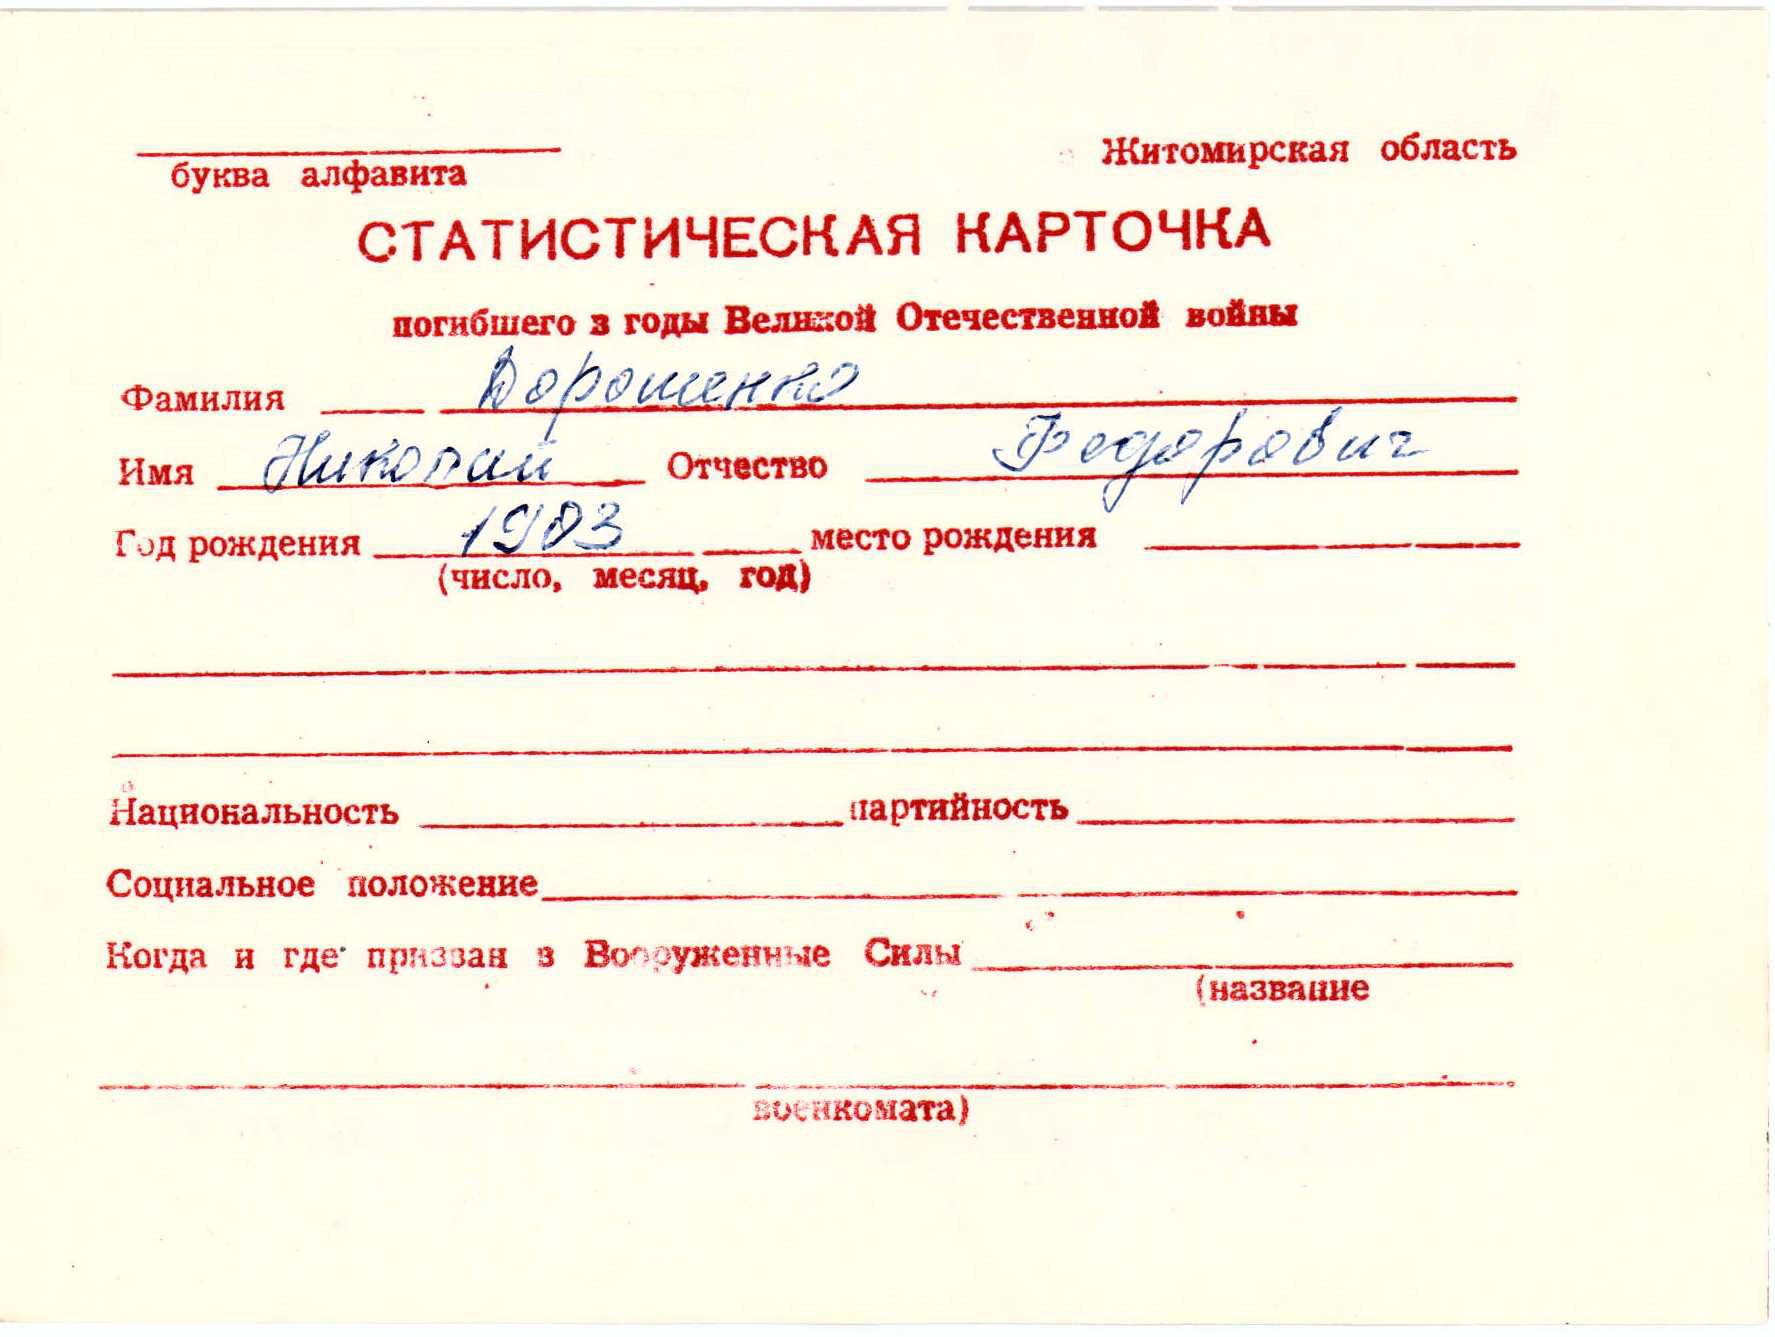 Житомирская область
буква алфавита
СТАТИСТИЧЕСКАЯ КАРТОЧКА
погибшего в годы Великой Отечественной войны
Фамилия Дорошенко
Имя Николай Отчество Федорович
Год рождения 1903 место рождения
(число, месяц, год)
Национальность партийность
Социальное положение
Когда и где призван в Вооруженные Силы
(название
военкомата)